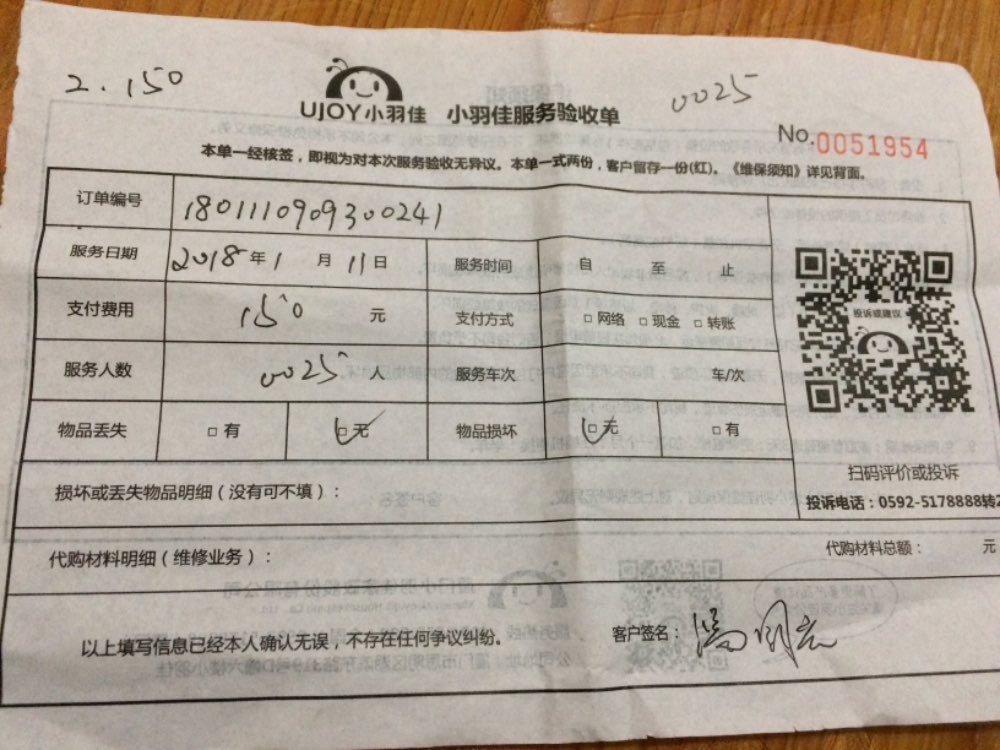 2.150
UJOY小羽佳 小羽佳服务验收单
0025
No.0051954
本单一经核签，即视为对本次服务验收无异议。本单一式两份，客户留存一份(红)。《维保须知》详见背面。
订单编号 180111090930024​1
服务日期 2018年1月11日 服务时间 自 至 止
支付费用 150 元 支付方式 □网络 □现金 □转账
服务人数 0025 人 服务车次 车/次
物品丢失 □有 □无 物品损坏 □无 □有
投诉或建议
扫码评价或投诉
投诉电话：0592-5178888转2
损坏或丢失物品明细（没有可不填）：
代购材料明细（维修业务）： 代购材料总额： 元
以上填写信息已经本人确认无误，不存在任何争议纠纷。 客户签名：